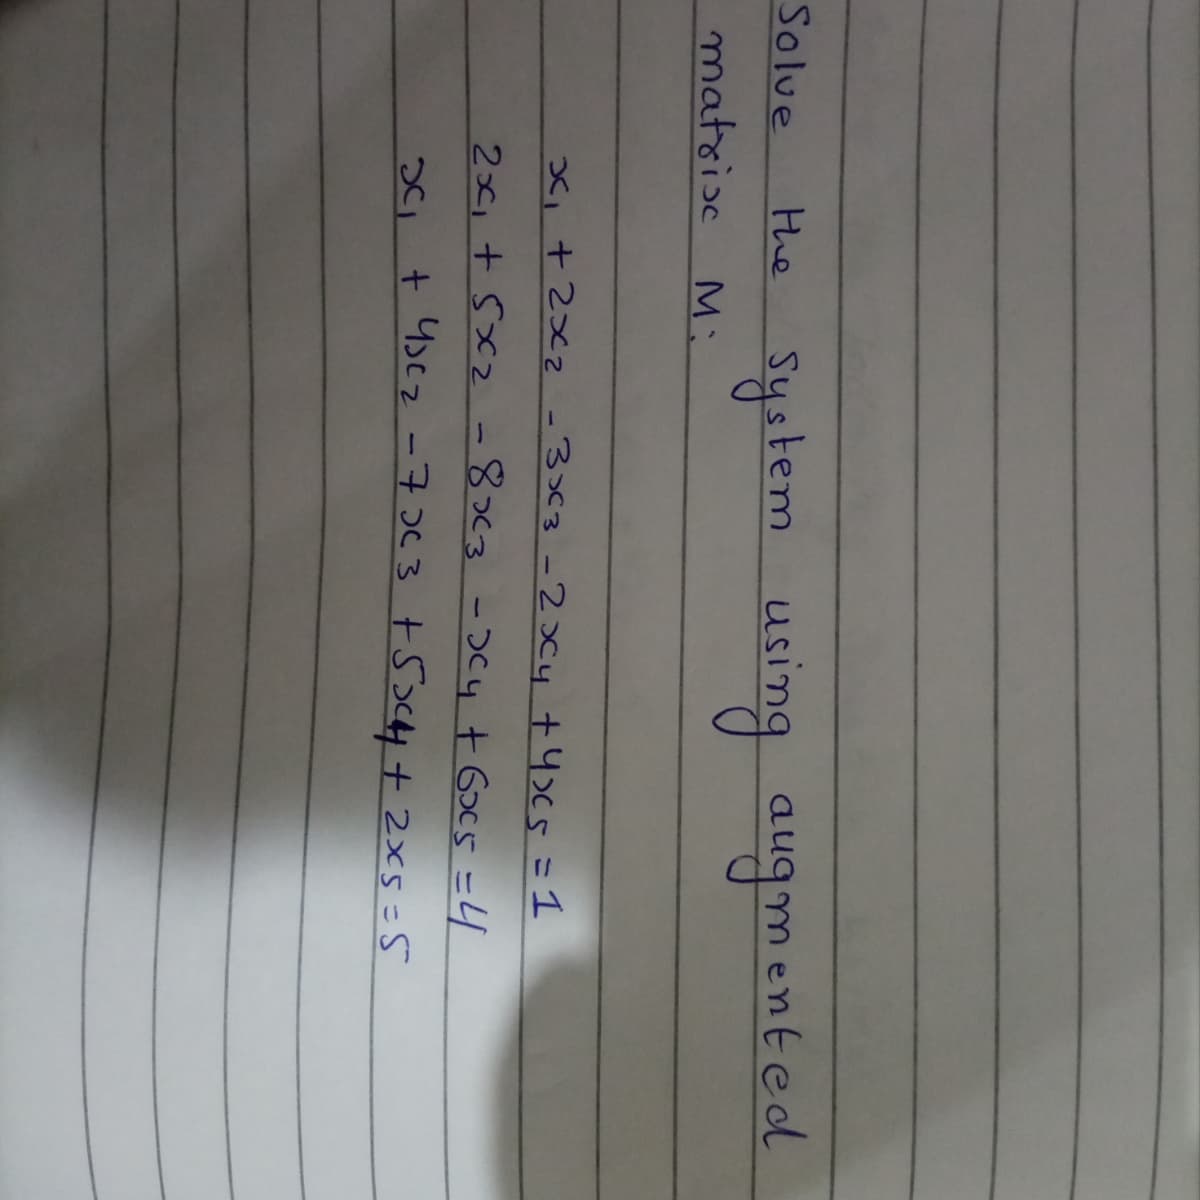 Solve the System using augmented
matrix M:
x₁ + 2x₂ - 3x₃ - 2x₄ + 4x₅ = 1
2x₁ + 5x₂ - 8x₃ - x₄ + 6x₅ = 4
x₁ + 4x₂ - 7x₃ + 5x₄ + 2x₅ = 5